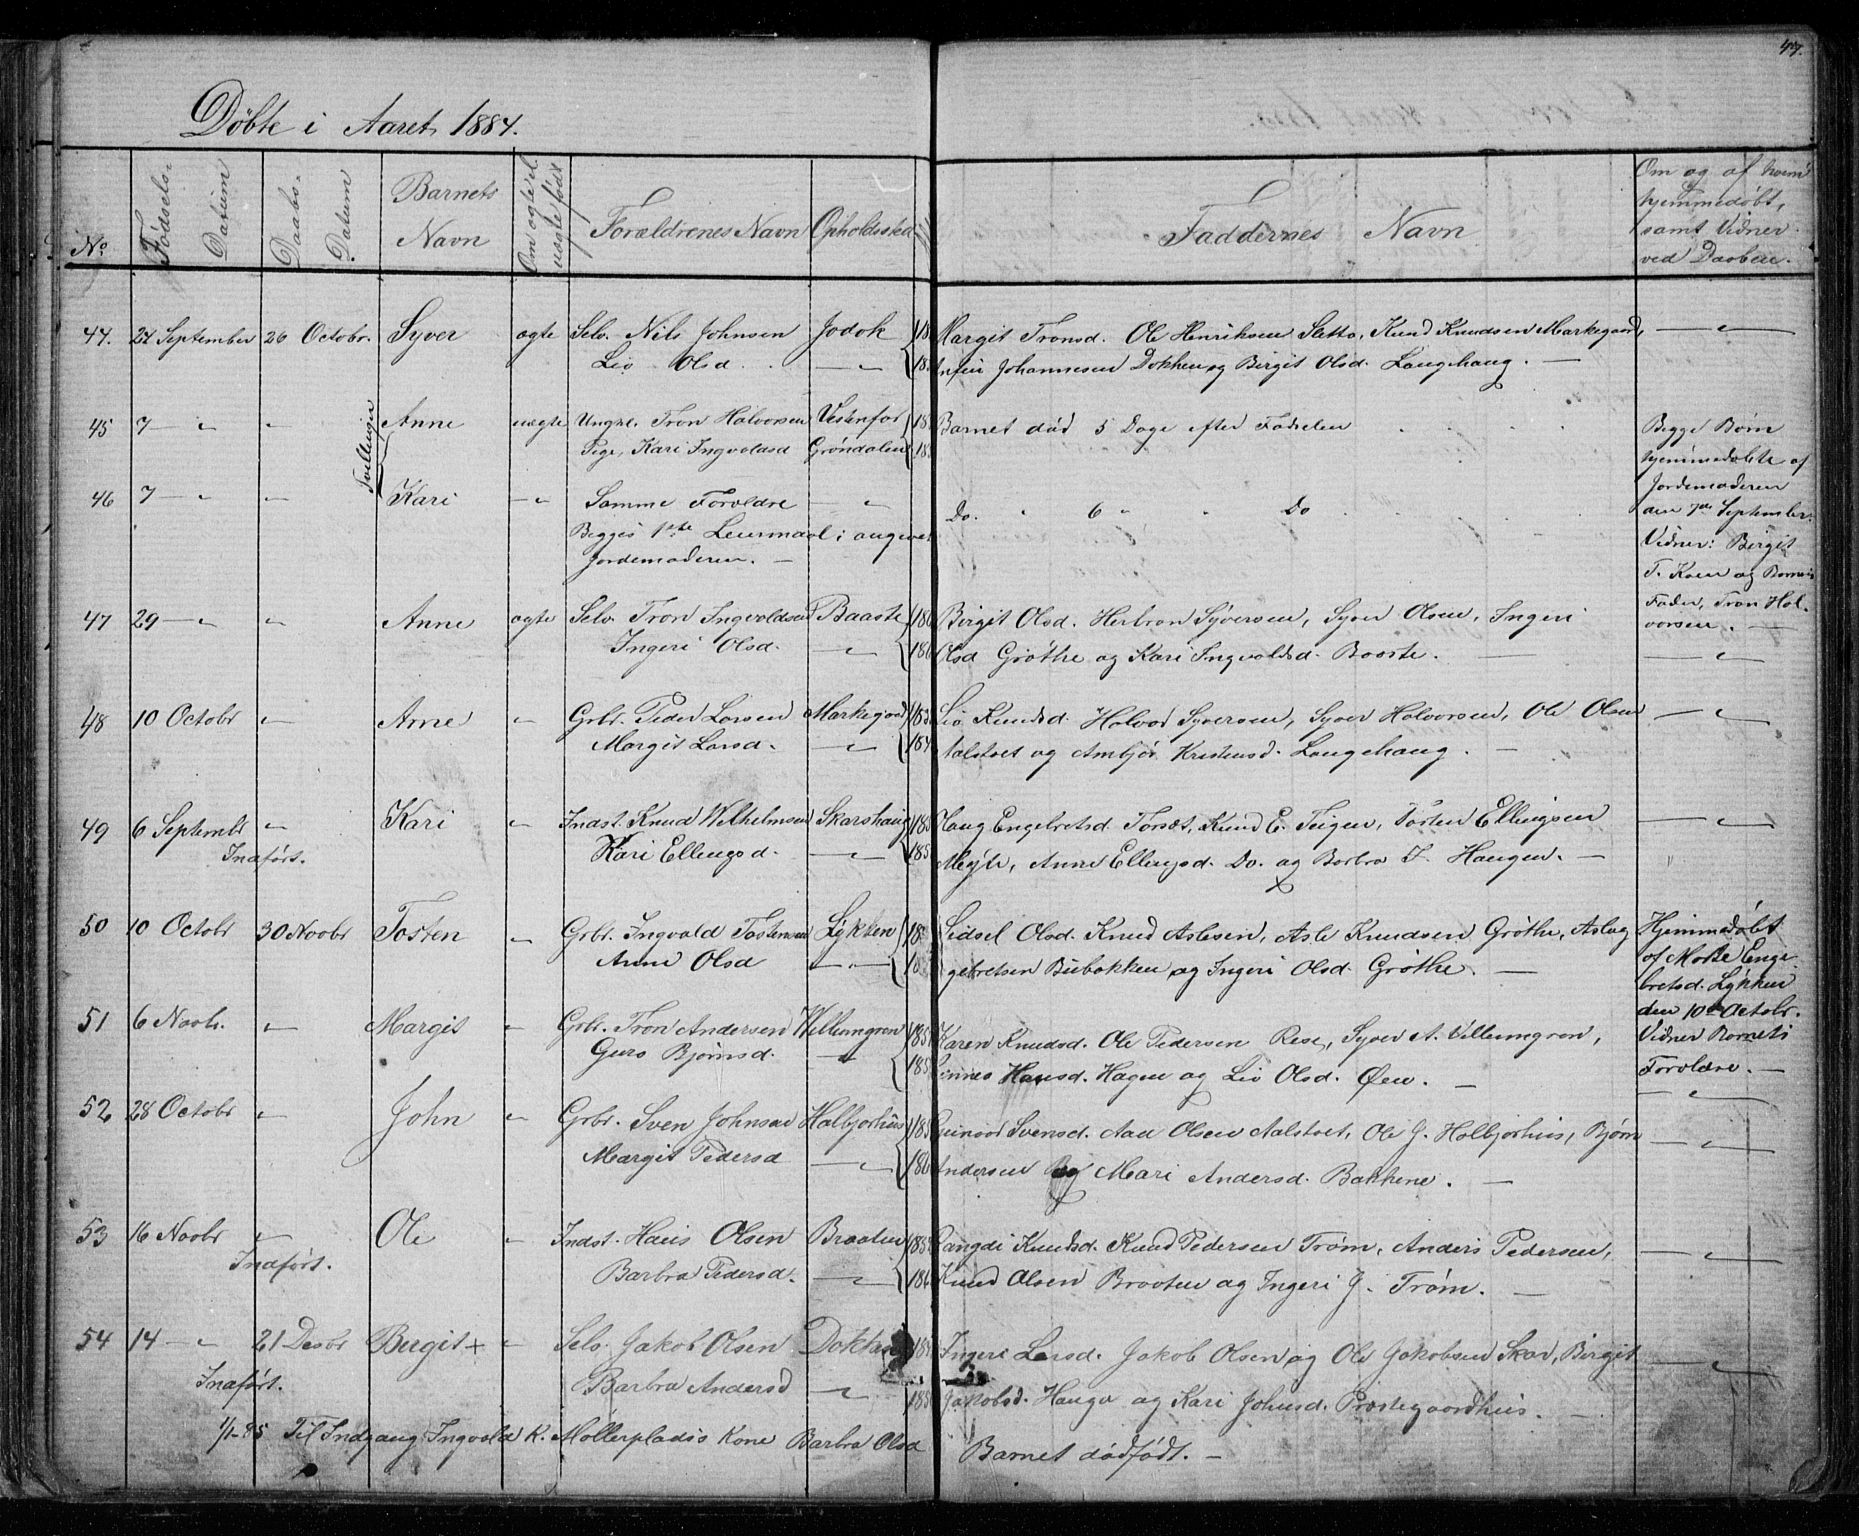 47.
Døbte i Aaret 1884.
No. Fødsels- Datum Daabs- Datum Barnets Navn Om ægte el. uægte født Forældrenes Navn Opholdssted Faddernes Navn Om og af hvem hjemmedøbt, samt Vidner ved Daaben.
44. 24 September 26 Octobr. Syver ægte Selv. Nils Johnsen Jodok Margit Tronsd. Ole Henriksen Sletto, Knud Knudsen Markegaard,
Liv Olsd. Johannesen Dokken og Birgit Olsd. Langehaug. —
45 7 — " " Anne uægte Ungk. Tron Halvorsen Vestenfor Barnet død 5 Dage efter Fødselen
Tvillinger
Pige, Kari Ingvoldsd Grøndalen
46 7 — " " Kari — " Samme Forældre — " Do. " 6 " " Do
Begges 1ste Leiermaal; angivet
Jordemoderen. —
Begge Børn
hjemmedøbte af
Jordemoderen
den 7de September.
Vidner: Birgit
T. Koen og Barnets
Fader, Tron Hal-
vorsen. —
47 29 — " " Anne ægte Selv. Tron Ingvoldsen Baaste Birgit Olsd. Herbran Syversen, Syver Olsen, Ingeri
Ingeri Olsd. — " Olsd Grøthe og Kari Ingvoldsd. Baaste. — "
48 10 Octobr " Arne " Grbr. Peder Larsen Markegaard Liv Knudsd. Halvor Syversen, Syver Halvorsen, Ole Olsen — "
Margit Larsd. — " og Ambjør Kristensd. Langehaug. —
49 6 Septembr " Kari " Indst. Knud Wilhelmsen Skarshaug Haug Engebretsd. Torset, Knud E. Teigen, Tosten Ellingsen — "
Indført. Kari Ellingsd. — " Anne Ellingsd. Do. og Barbra T. Haugen. —
50 10 Octobr 30 Novbr Tosten " Grbr. Ingvald Tostensen Lykken Sidsel Olsd. Knud Aslesen, Asle Knudsen Grøthe, Aslag
Anne Olsd — " — gebretsen Bubakken og Ingeri Olsd. Grøthe. —
Hjemmedøbt
af Enge-
bretsd. Lykken
den 10de Octobr.
Vidner Barnets
Forældre. —
51 6 Novbr. " Margit " Grbr. Tron Andersen Villumgron Karen Knudsd. Ole Pedersen Rese, Syver A. Villumgron,
Guro Bjørnsd. — " Hansd. Hagen og Liv Olsd. Øen. — — "
52 28 Octobr " John " Grbr. Sven Johnsen Halbjorhus Gunvor Svensd. Aad Olsen Aalstvet, Ole J. Halbjorhus, Bjørn — "
Margit Pedersd — " Andersen og Mari Andersd. Bakkene. —
53 16 Novbr " Ole " Indst. Hans Olsen Braaten Rangdi Knudsd. Knud Pedersen Trøm, Anders Pedersen, — "
Indført. Barbra Pedersd. — " Knud Olsen Braaten og Ingeri J. Trøm. —
54 14 — " 21 Desbr Bergit + " Selv. Jakob Olsen Dokken Ingeri Larsd. Jakob Olsen og Ole Jakobsen Skar, Birgit — "
Indført. Barbra Andersd — " Jakobsd. Hauga og Kari Johnsd. Præstegaardhus. —
1/1-85 Til Indgang Ingvald K. Møllerpladss Kone Barbra Olsd Barnet dødfødt. —